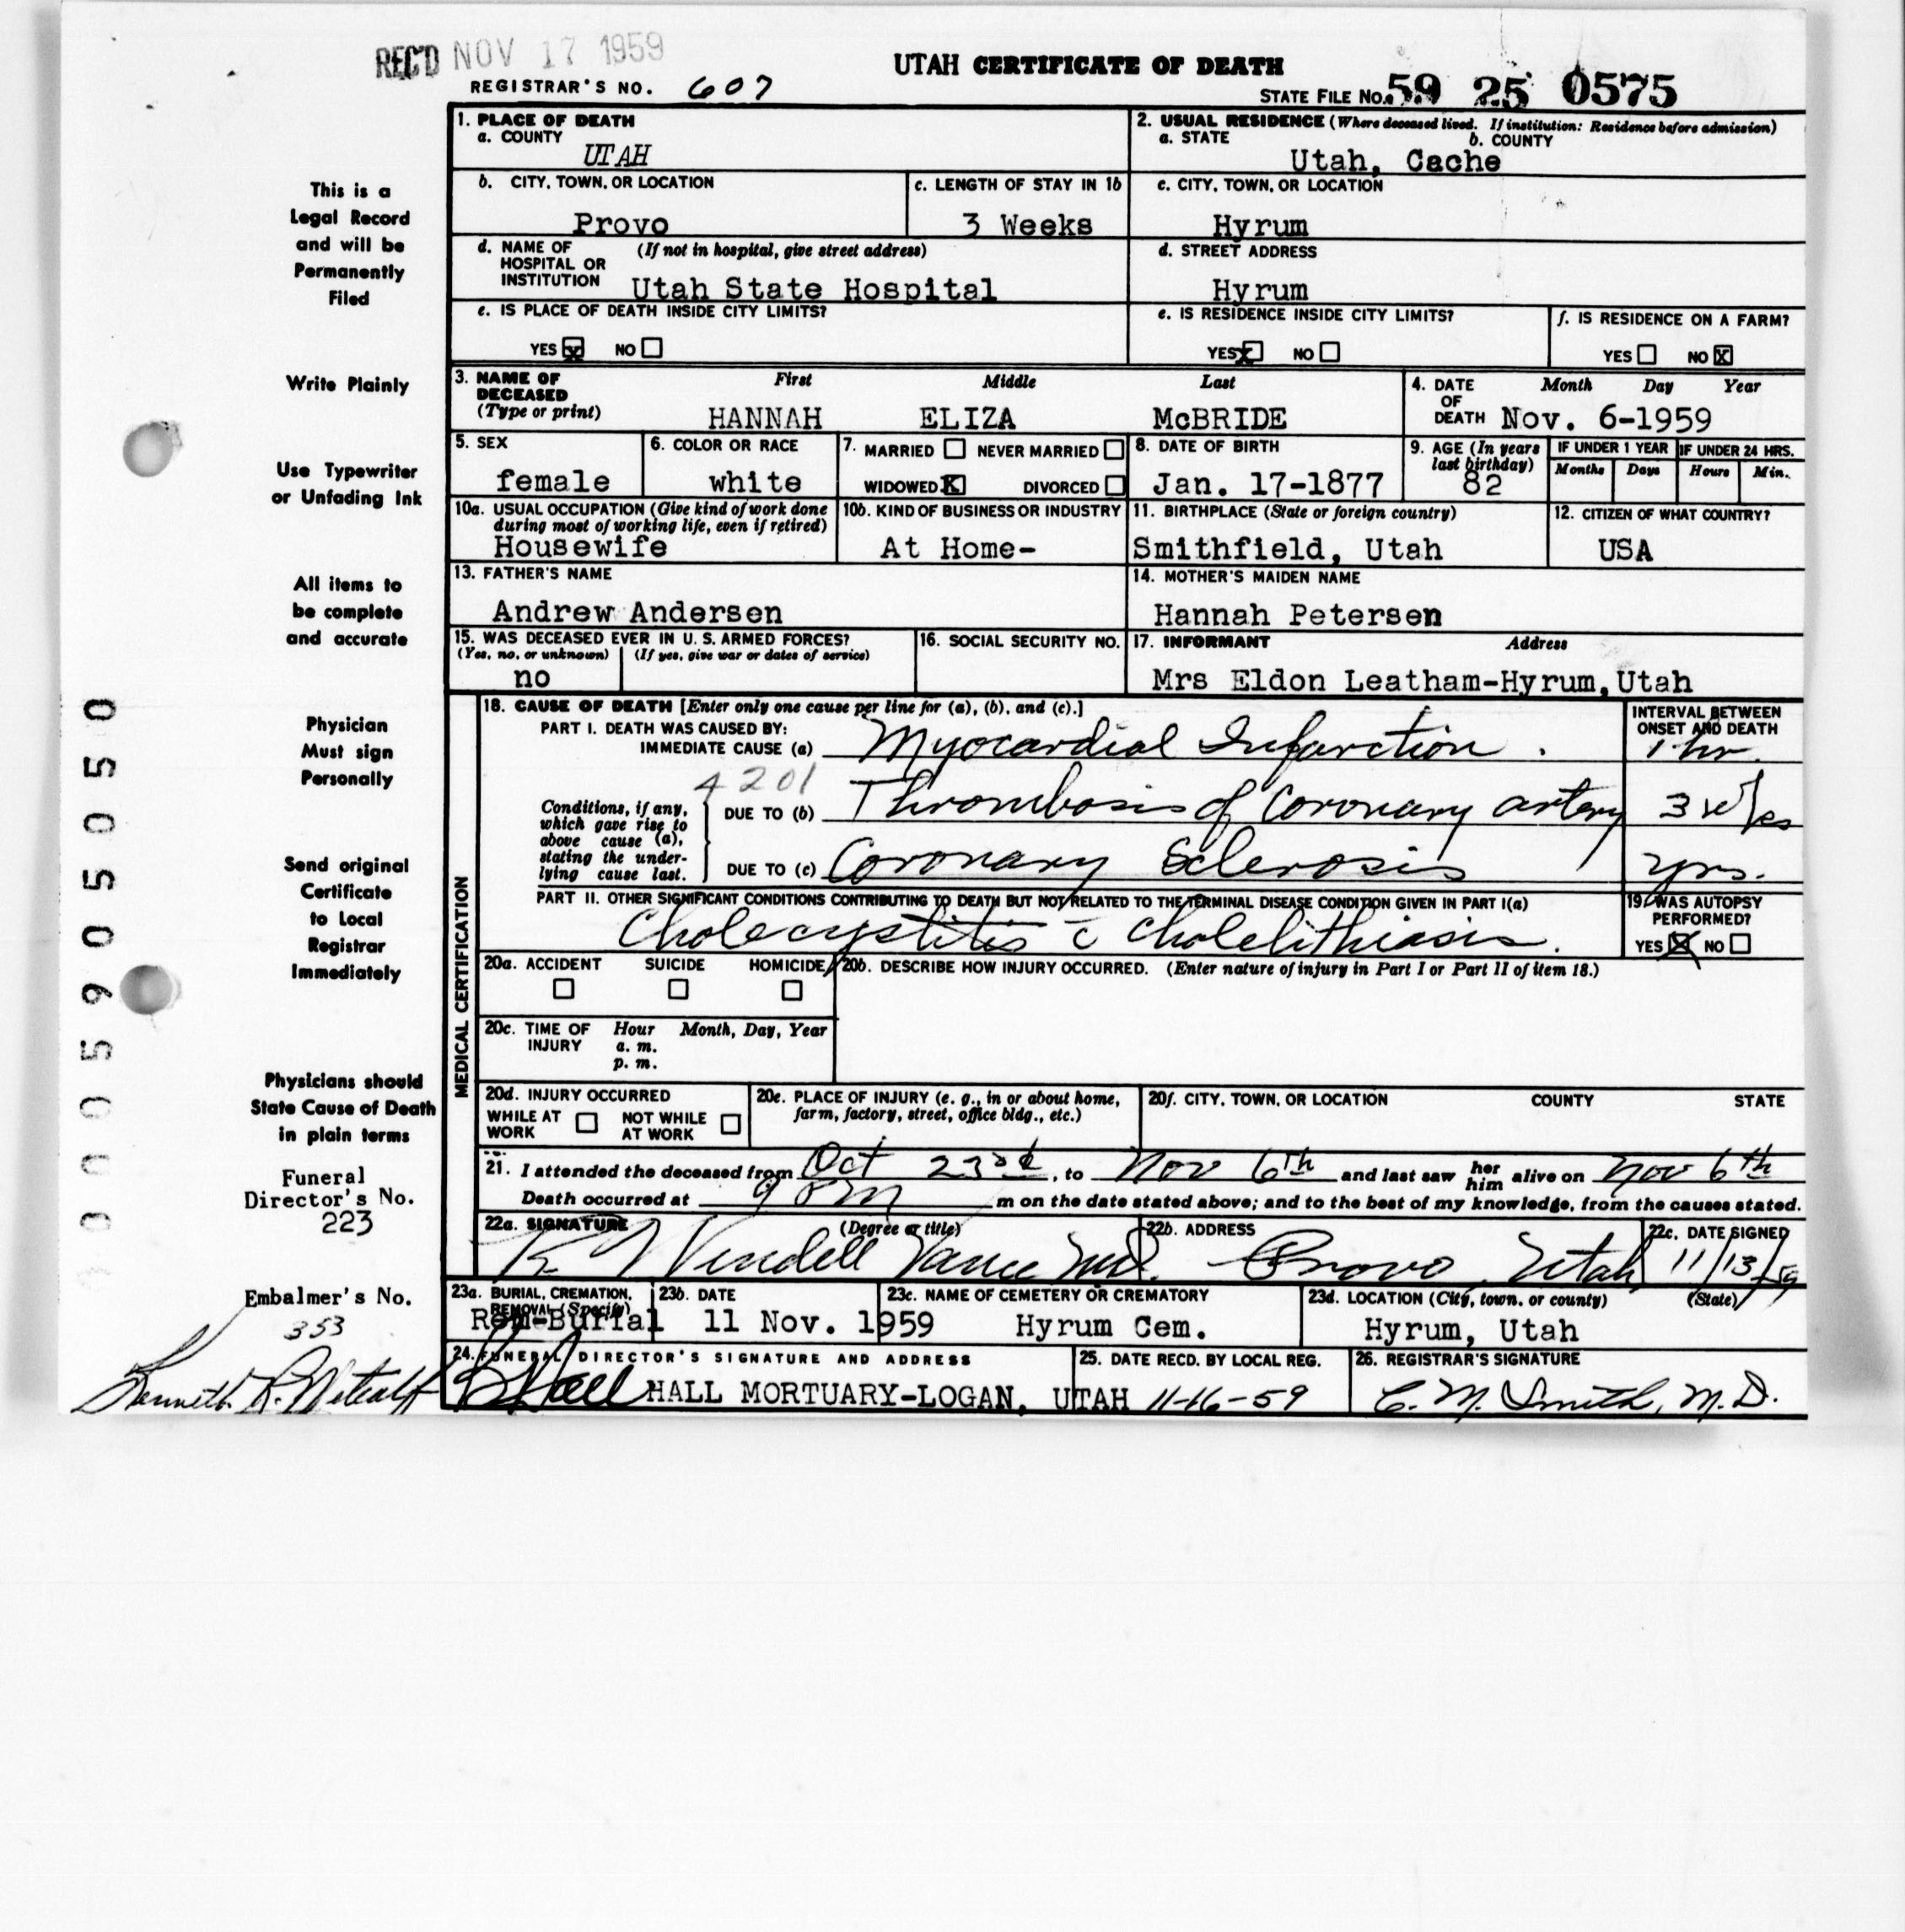 REC'D NOV 17 1959
UTAH CERTIFICATE OF DEATH
REGISTRAR'S NO. 607
STATE FILE NO. 59 25 0575
1. PLACE OF DEATH
a. COUNTY
UTAH
2. USUAL RESIDENCE (Where deceased lived. If institution: Residence before admission)
a. STATE b. COUNTY
Utah, Cache
b. CITY, TOWN, OR LOCATION
Provo
c. LENGTH OF STAY IN 1b
3 Weeks
c. CITY, TOWN, OR LOCATION
Hyrum
d. NAME OF HOSPITAL OR INSTITUTION (If not in hospital, give street address)
Utah State Hospital
d. STREET ADDRESS
Hyrum
e. IS PLACE OF DEATH INSIDE CITY LIMITS?
YES X NO
e. IS RESIDENCE INSIDE CITY LIMITS?
YES X NO
f. IS RESIDENCE ON A FARM?
YES NO X
3. NAME OF DECEASED (Type or print)
First Middle Last
HANNAH ELIZA McBRIDE
4. DATE OF DEATH Month Day Year
Nov. 6-1959
5. SEX
female
6. COLOR OR RACE
white
7. MARRIED NEVER MARRIED
WIDOWED X DIVORCED
8. DATE OF BIRTH
Jan. 17-1877
9. AGE (In years last birthday)
82
IF UNDER 1 YEAR
Months Days
IF UNDER 24 HRS.
Hours Min.
10a. USUAL OCCUPATION (Give kind of work done during most of working life, even if retired)
Housewife
10b. KIND OF BUSINESS OR INDUSTRY
At Home-
11. BIRTHPLACE (State or foreign country)
Smithfield, Utah
12. CITIZEN OF WHAT COUNTRY?
USA
13. FATHER'S NAME
Andrew Andersen
14. MOTHER'S MAIDEN NAME
Hannah Petersen
15. WAS DECEASED EVER IN U. S. ARMED FORCES?
(Yes, no, or unknown) (If yes, give war or dates of service)
no
16. SOCIAL SECURITY NO.
17. INFORMANT Address
Mrs Eldon Leatham-Hyrum, Utah
MEDICAL CERTIFICATION
18. CAUSE OF DEATH [Enter only one cause per line for (a), (b), and (c).]
PART I. DEATH WAS CAUSED BY:
IMMEDIATE CAUSE (a) Myocardial Infarction.
INTERVAL BETWEEN ONSET AND DEATH
1 hr.
4201
Conditions, if any, which gave rise to above cause (a), stating the underlying cause last.
DUE TO (b) Thrombosis of Coronary artery 3 wks
DUE TO (c) Coronary Sclerosis yrs.
PART II. OTHER SIGNIFICANT CONDITIONS CONTRIBUTING TO DEATH BUT NOT RELATED TO THE TERMINAL DISEASE CONDITION GIVEN IN PART I(a)
Cholecystitis c̄ Cholelithiasis.
19. WAS AUTOPSY PERFORMED?
YES X NO
20a. ACCIDENT SUICIDE HOMICIDE
20b. DESCRIBE HOW INJURY OCCURRED. (Enter nature of injury in Part I or Part II of item 18.)
20c. TIME OF INJURY Hour Month, Day, Year
a. m.
p. m.
20d. INJURY OCCURRED
WHILE AT WORK NOT WHILE AT WORK
20e. PLACE OF INJURY (e. g., in or about home, farm, factory, street, office bldg., etc.)
20f. CITY, TOWN, OR LOCATION COUNTY STATE
21. I attended the deceased from Oct 23rd, to Nov 6th and last saw her him alive on Nov 6th
Death occurred at 9 pm m on the date stated above; and to the best of my knowledge, from the causes stated.
22a. SIGNATURE (Degree or title)
R. Wendell Vance Md.
22b. ADDRESS
Provo Utah
22c. DATE SIGNED
11/13/59
23a. BURIAL, CREMATION, REMOVAL (Specify)
Rem-Burial
23b. DATE
11 Nov. 1959
23c. NAME OF CEMETERY OR CREMATORY
Hyrum Cem.
23d. LOCATION (City, town, or county) (State)
Hyrum, Utah
24. FUNERAL DIRECTOR'S SIGNATURE AND ADDRESS
Hall HALL MORTUARY-LOGAN, UTAH
25. DATE RECD. BY LOCAL REG.
11-16-59
26. REGISTRAR'S SIGNATURE
C. M. Smith, M. D.
This is a
Legal Record
and will be
Permanently
Filed
Write Plainly
Use Typewriter
or Unfading Ink
All items to
be complete
and accurate
Physician
Must sign
Personally
Send original
Certificate
to Local
Registrar
Immediately
Physicians should
State Cause of Death
in plain terms
Funeral
Director's No.
223
Embalmer's No.
353
Kenneth R. Metcalf